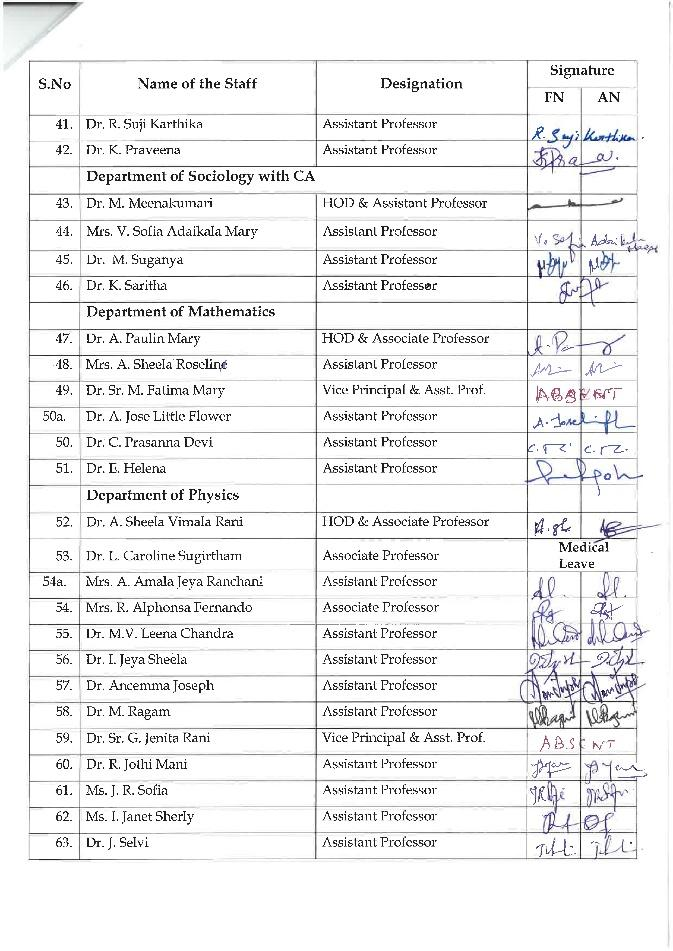 S.No Name of the Staff Designation Signature
FN AN
41. Dr. R. Suji Karthika Assistant Professor R. Suji Karthika.
42. Dr. K. Praveena Assistant Professor
Department of Sociology with CA
43. Dr. M. Meenakumari HOD & Assistant Professor
44. Mrs. V. Sofia Adaikala Mary Assistant Professor V. Sofia Adaikala Mary
45. Dr. M. Suganya Assistant Professor
46. Dr. K. Saritha Assistant Professor
Department of Mathematics
47. Dr. A. Paulin Mary HOD & Associate Professor
48. Mrs. A. Sheela Roseline Assistant Professor
49. Dr. Sr. M. Fatima Mary Vice Principal & Asst. Prof. ABSENT
50a. Dr. A. Jose Little Flower Assistant Professor
50. Dr. C. Prasanna Devi Assistant Professor
51. Dr. E. Helena Assistant Professor
Department of Physics
52. Dr. A. Sheela Vimala Rani HOD & Associate Professor
53. Dr. L. Caroline Sugirtham Associate Professor Medical
Leave
54a. Mrs. A. Amala Jeya Ranchani Assistant Professor
54. Mrs. R. Alphonsa Fernando Associate Professor
55. Dr. M.V. Leena Chandra Assistant Professor
56. Dr. I. Jeya Sheela Assistant Professor
57. Dr. Ancemma Joseph Assistant Professor
58. Dr. M. Ragam Assistant Professor
59. Dr. Sr. G. Jenita Rani Vice Principal & Asst. Prof. ABSENT
60. Dr. R. Jothi Mani Assistant Professor
61. Ms. J. R. Sofia Assistant Professor
62. Ms. I. Janet Sherly Assistant Professor
63. Dr. J. Selvi Assistant Professor